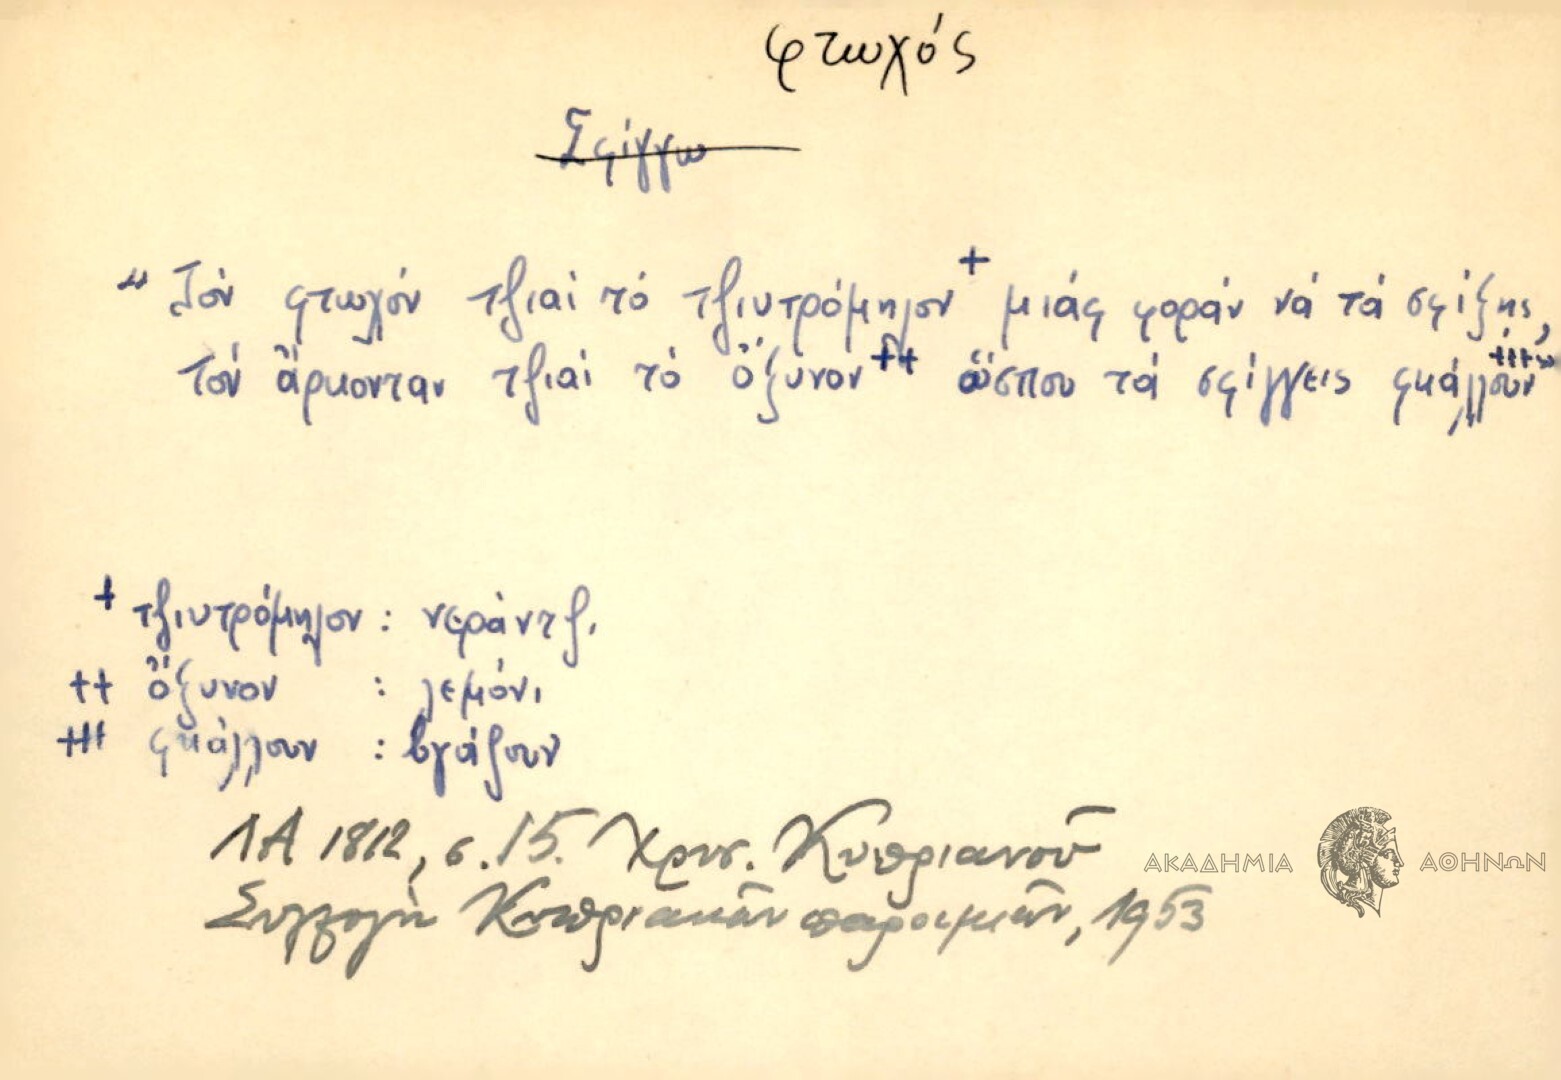 φτωχός
Σφίγγω
“Τόν φτωχόν τζιαί τό τζιυτρόμηλον⁺ μιάς φοράν νά τά σφίξης,
τόν ἄρκονταν τζιαί τό ὄξυνον⁺⁺ ὥσπου τά σφίγγεις φκάλλουν⁺⁺⁺”
+ τζιυτρόμηλον : νεράντζι
++ ὄξυνον : λεμόνι
+++ φκάλλουν : βγάζουν
ΛΑ 1812, σ. 15. Χρυσ. Κυπριανοῦ
Συλλογὴ Κυπριακῶν παροιμιῶν, 1953
ΑΚΑΔΗΜΙΑ ΑΘΗΝΩΝ